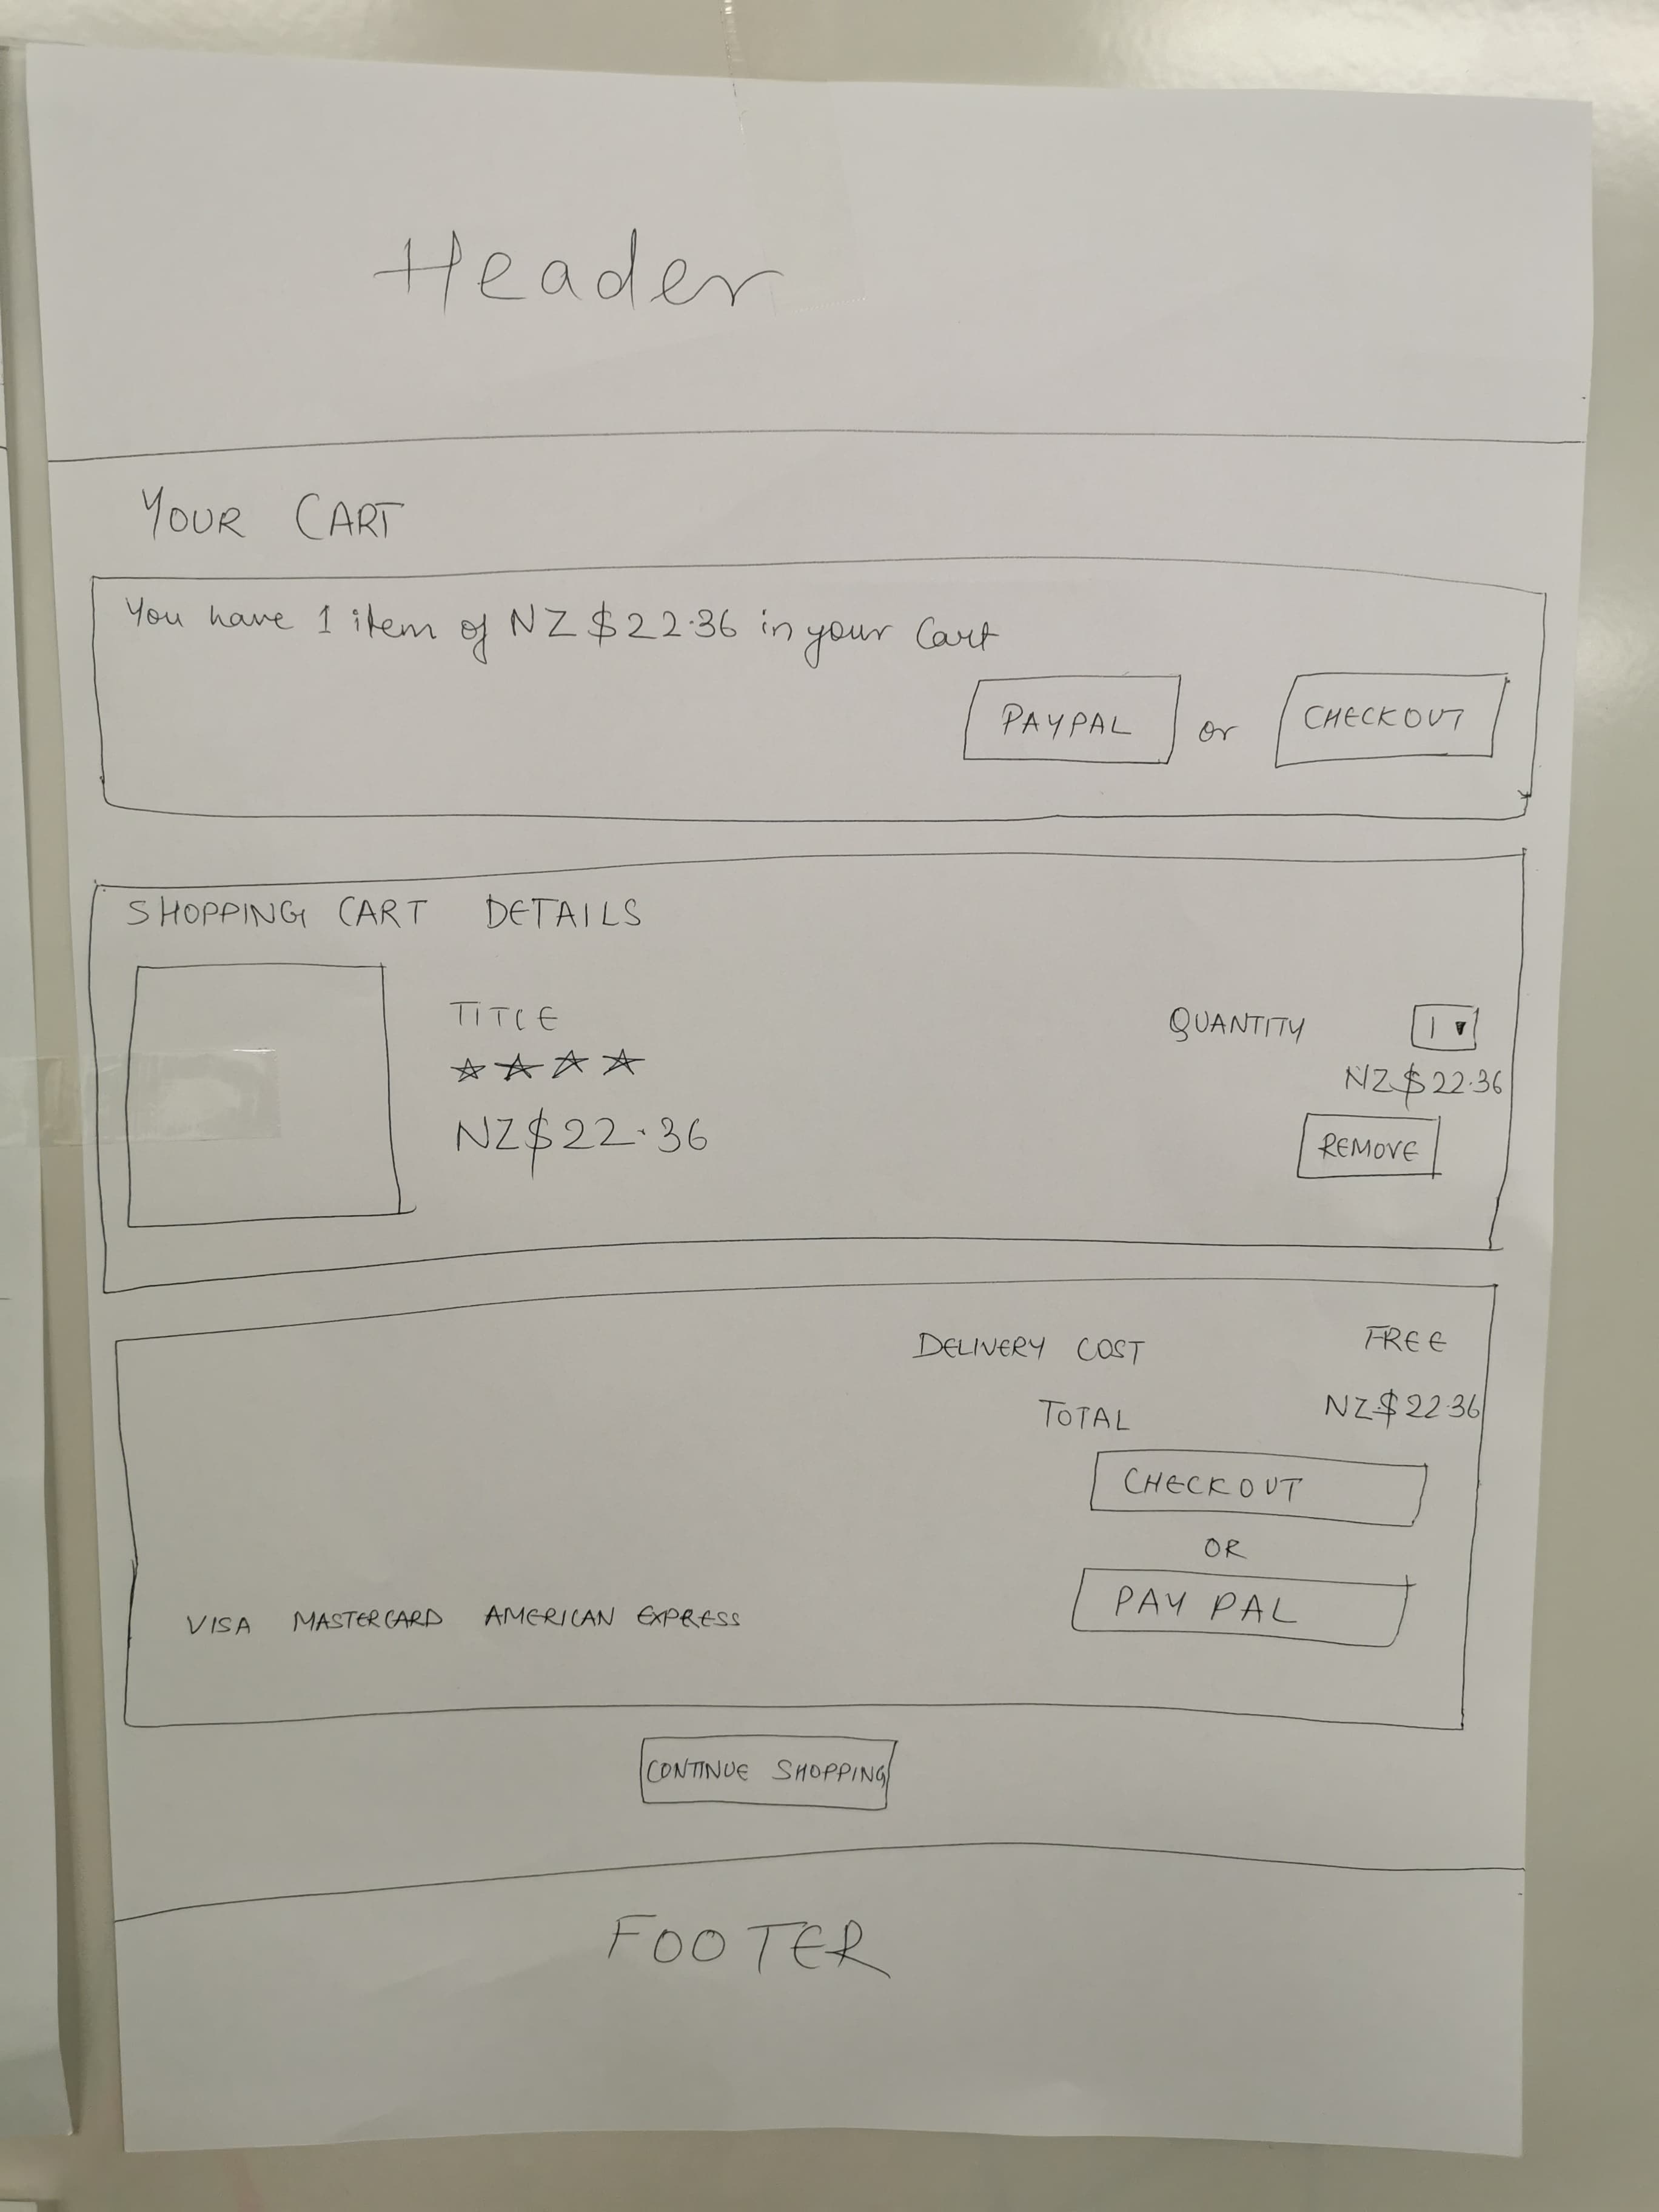 Header
YOUR CART
You have 1 item of NZ$22.36 in your Cart
PAYPAL or CHECKOUT
SHOPPING CART DETAILS
TITLE
QUANTITY 1
NZ$22.36
NZ$22.36
REMOVE
DELIVERY COST FREE
TOTAL NZ$22.36
CHECKOUT
OR
PAY PAL
VISA MASTERCARD AMERICAN EXPRESS
CONTINUE SHOPPING
FOOTER